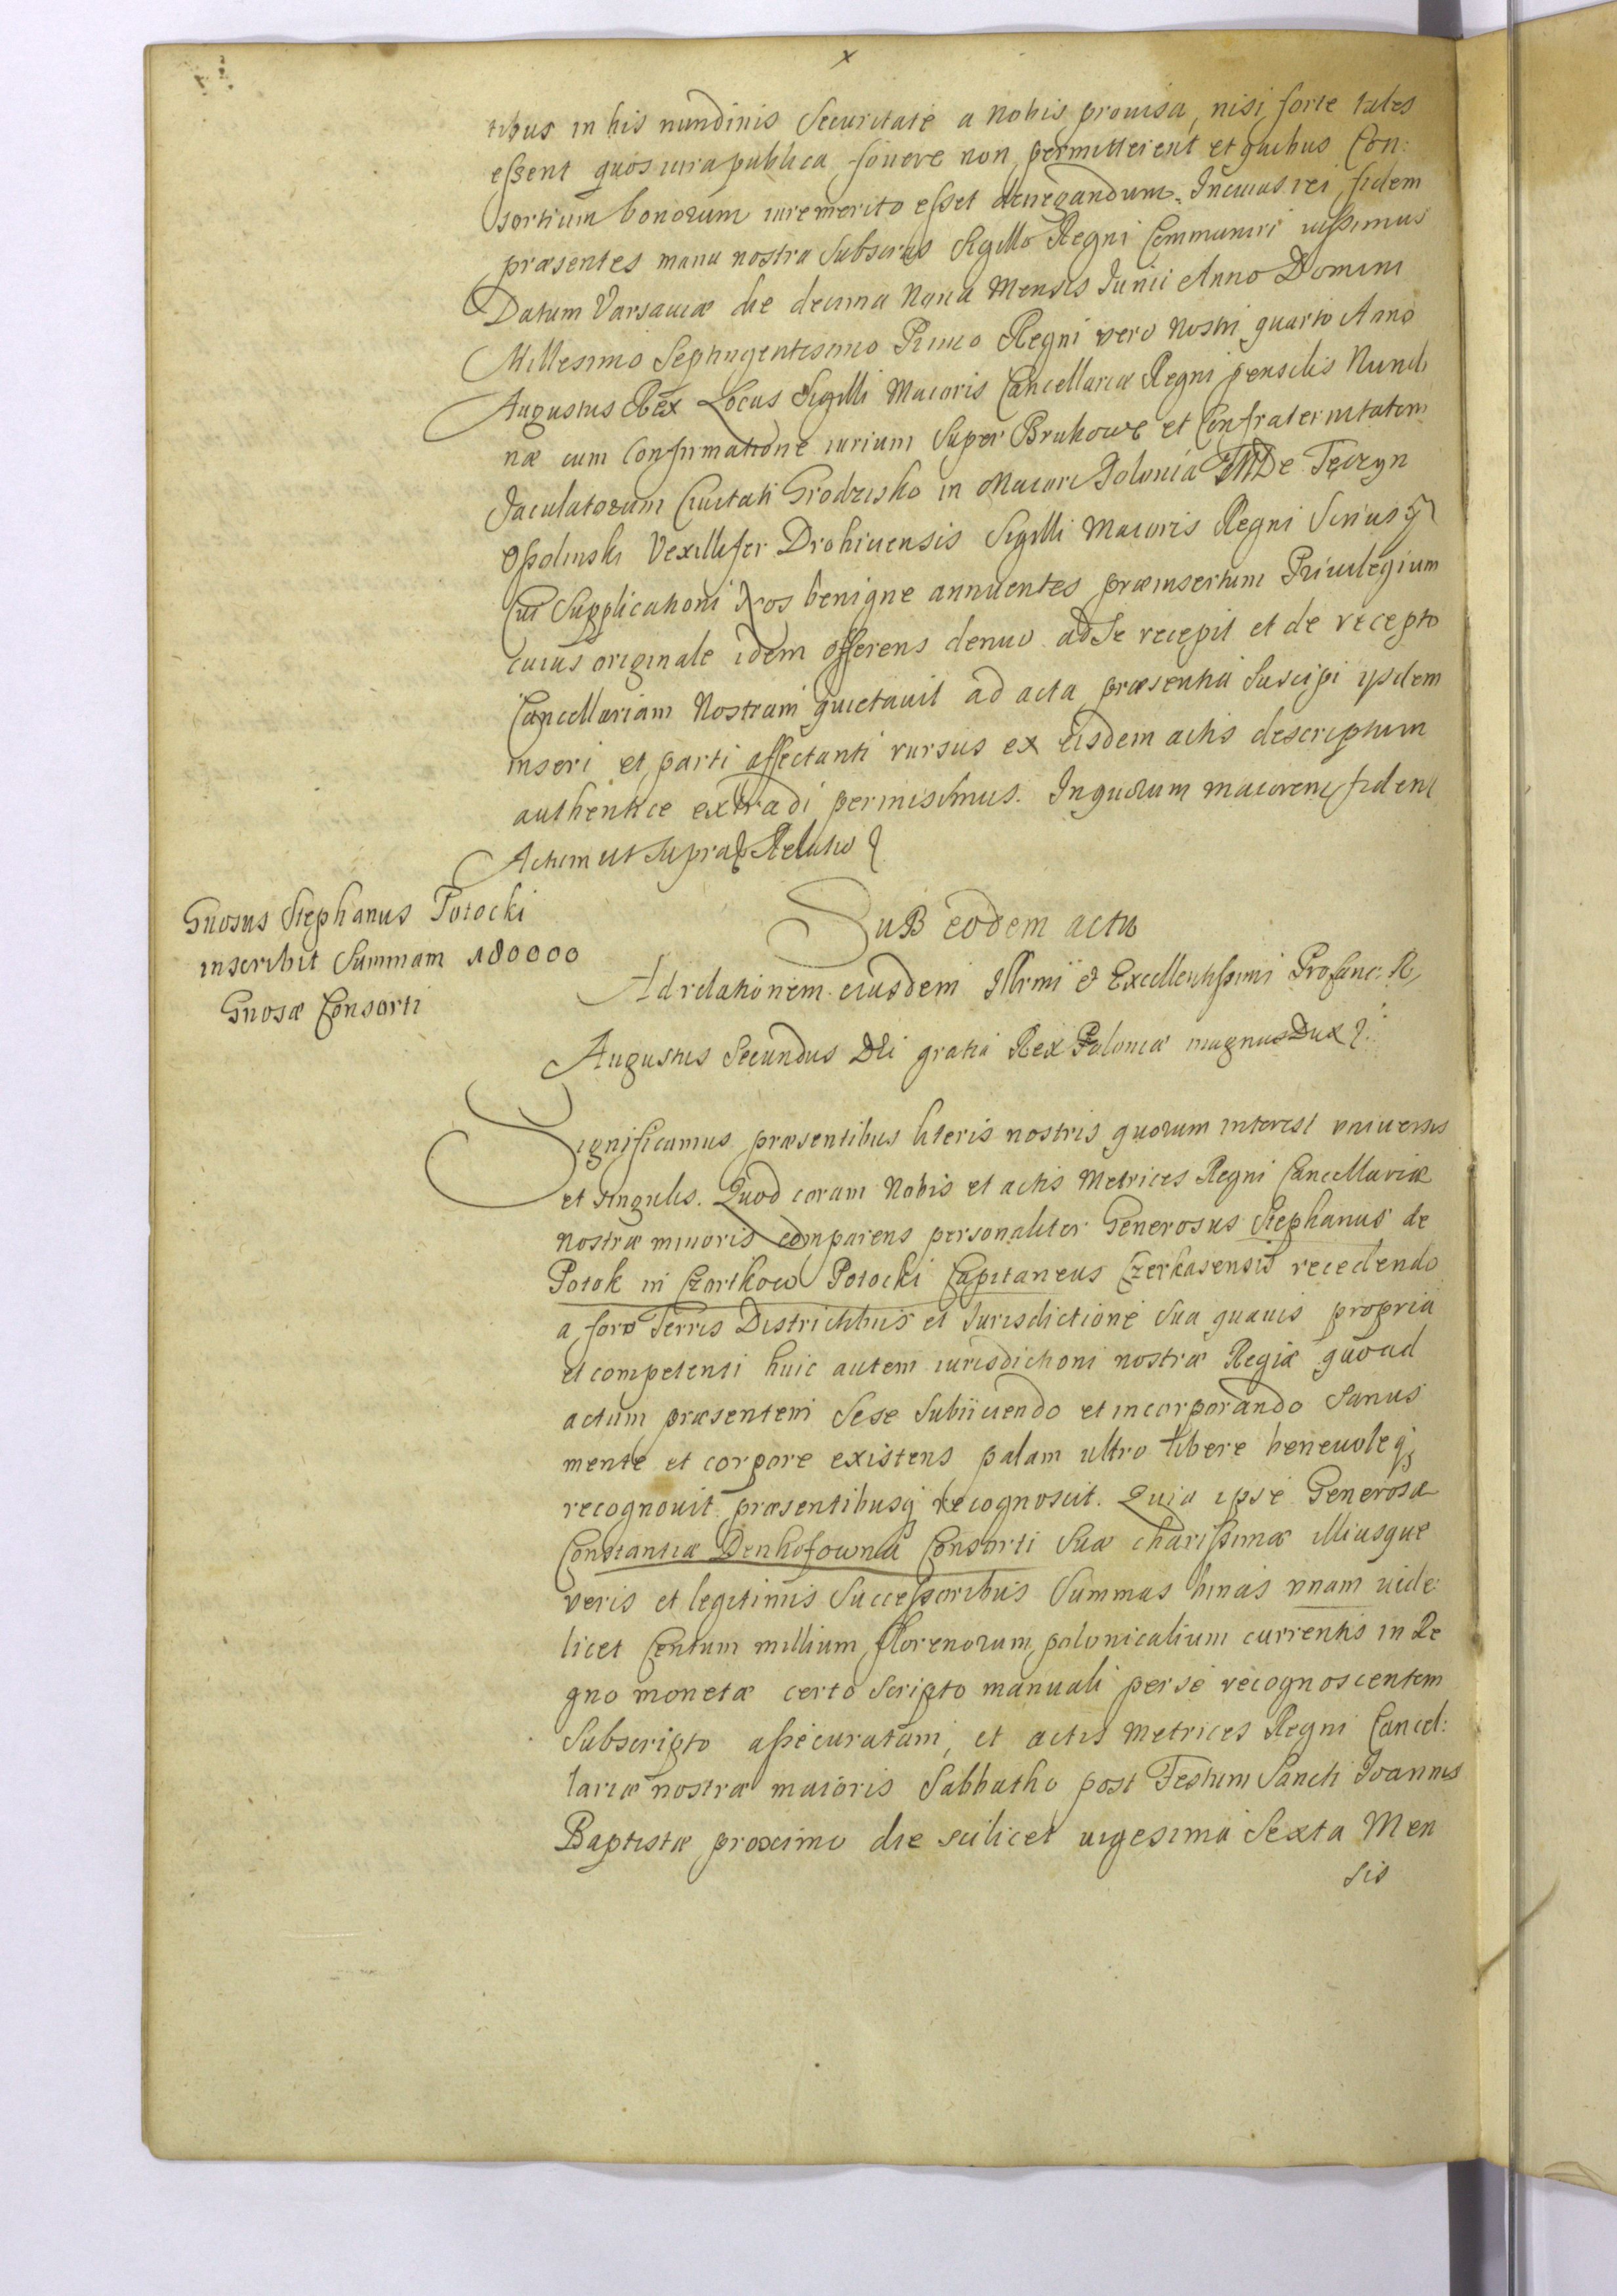 x
tibus in his nundinis Securitate a Nobis prouisa, nisi forte tales
essent quos iura publica fouere non permitterent et quibus Con:
sortium bonorum iure merito esset denegandum. In cuius rei fidem
præsentes manu nostra Subscras Sigillo Regni Communiri iussimus
Datum Varsauiæ die decima Nona Mensis Junii Anno Domini
Millesimo Septingentesimo Primo Regni vero Nostri quarto Anno
Augustus Rex Locus Sigilli Maioris Cancellariæ Regni pensilis Nundi
næ cum Confirmatione iurium Super Brukowe et Confraternitatem
Jaculatorum Ciuitati Grodzisko in Maiori Polonia De Tęczyn
Ossolinski Vexillifer Drohicensis Sigilli Maioris Regni
Cui Supplicationi Nos benigne annuentes præinsertum Priuilegium
cuius originale idem offerens denuo ad Se recepit et de recepto
Cancellariam Nostram quietauit ad acta præsentia Suscipi ysdem
inseri et parti affectanti rursus ex eisdem actis descriptum
authentice extradi permisimus. In quorum maiorem fidem
Actum ut Supra Relatio
Gnosus Stephanus Potocki
inscribit Summam 180000
Gnosæ Consorti
SuB eodem actu
Ad relationem eiusdem Illrmi et Excellentissimi Procanc: R,
Augustus Secundus Dei gratia Rex Poloniæ magnus Dux
Significamus præsentibus literis nostris quorum interest vniuersis
et singulis. Quod coram Nobis et actis Metrices Regni Cancellariæ
nostræ minoris comparens personaliter Generosus Stephanus de
Potok in Czortkow Potocki Capitaneus Czerkasensis recedendo
a foro Terris Districtibus et Jurisdictione Sua quauis propria
et competenti huic autem iurisdictioni nostræ Regiæ quoad
actum præsentem Sese Subiiciendo et incorporando Sanus
mente et corpore existens palam ultro libere beneuoleq;
recognouit præsentibusq recognoscit. Quia ipse Generosæ
Constantiæ Denhofowna Consorti Suæ charissimæ illiusque
veris et legitimis Successoribus Summas binas vnam uide:
licet Centum millium florenorum polonicalium currentis in Re
gno monetæ certo Scripto manuali per se recognoscentem
Subscripto assecuratam, et actis Metrices Regni Cancel:
lariæ nostræ maioris Sabbatho post Festum Sancti Joannis
Baptistæ proximo die scilicet uigesima Sexta Men
sis